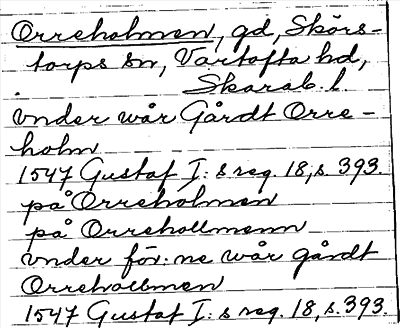 Orreholmen, gd, Skörs-
torps sn, Vartofta hd,
Skarab. l.
vnder wår Gårdt Orre-
holm
1547 Gustaf I:s reg. 18, s. 393.
på Orreholmen
på Orrehollmenn
vnder för:ne wår gårdt
Orrehollmen
1547 Gustaf I:s reg. 18, s. 393.